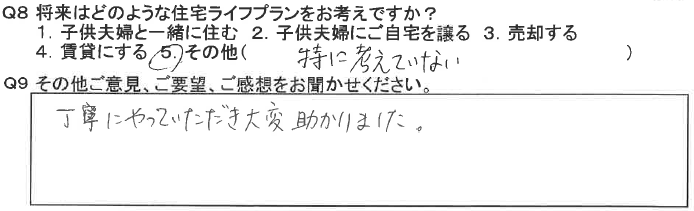 Q8 将来はどのような住宅ライフプランをお考えですか？
1. 子供夫婦と一緒に住む 2. 子供夫婦にご自宅を譲る 3. 売却する
4. 賃貸にする 5. その他( 特に考えていない )
Q9 その他ご意見、ご要望、ご感想をお聞かせください。
丁寧にやっていただき大変助かりました。